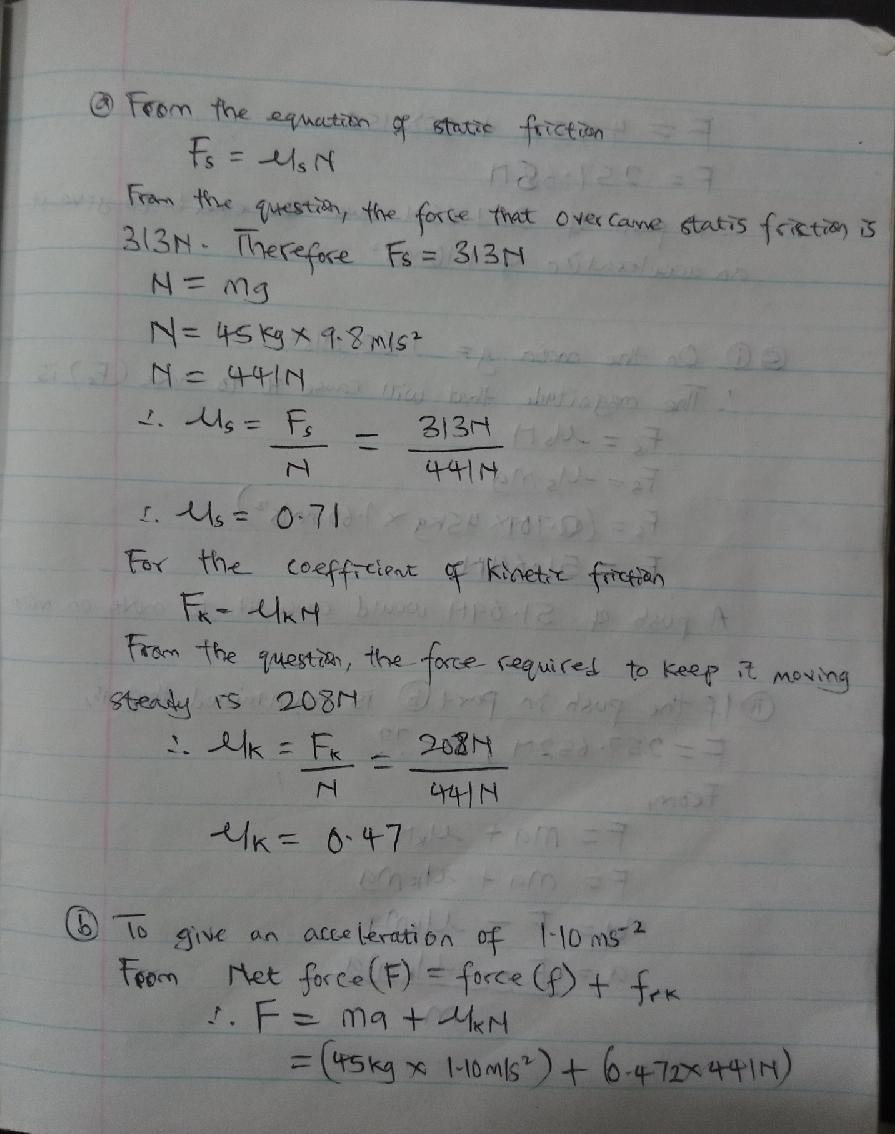 ⓐ From the equation of static friction
Fs = μsN
From the question, the force that overcame statis friction is
313N. Therefore Fs = 313N
N = mg
N = 45kg × 9.8m/s²
N = 441N
∴ μs = Fs/N = 313N/441N
∴ μs = 0.71
For the coefficient of kinetic friction
FK = μKN
From the question, the force required to keep it moving
steady is 208N
∴ μK = FK/N = 208N/441N
μK = 0.47
ⓑ To give an acceleration of 1.10 ms⁻²
From Net force (F) = force (f) + frK
∴ F = ma + μKN
= (45kg × 1.10m/s²) + (0.472×441N)